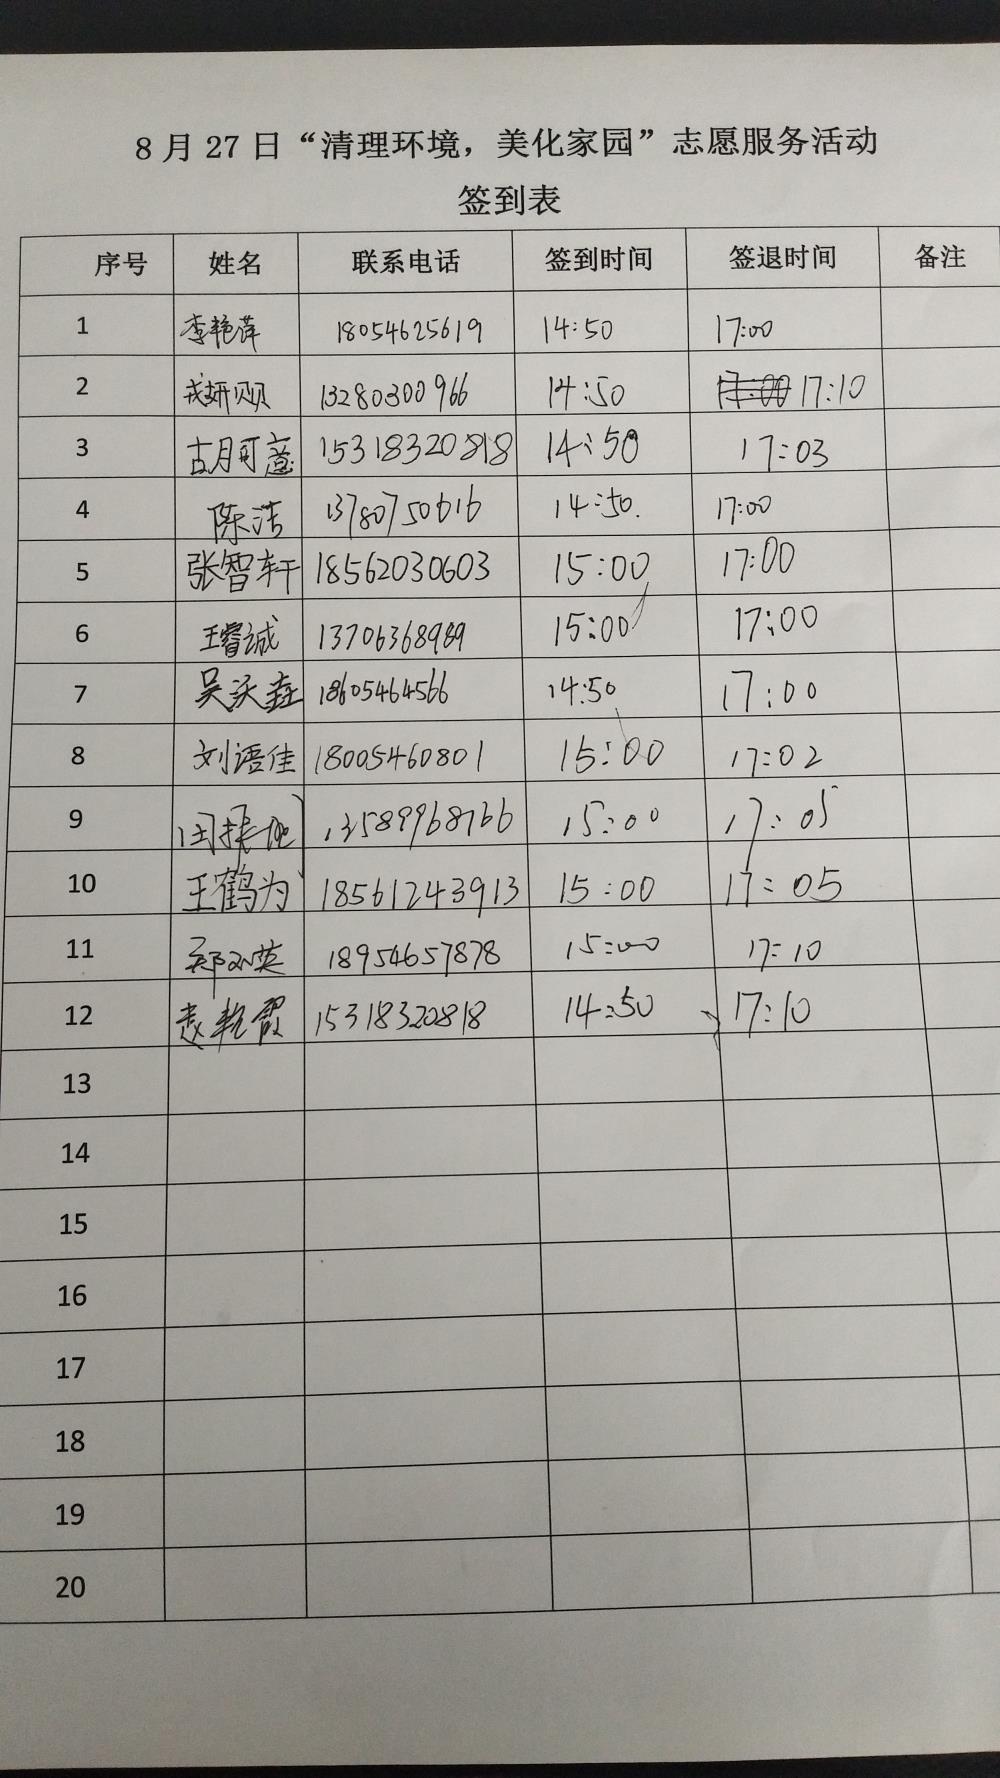 8月27日“清理环境，美化家园”志愿服务活动
签到表
序号 姓名 联系电话 签到时间 签退时间 备注
1 李艳萍 18054625619 14:50 17:00
2 妍 13280300966 14:50 17:00 17:10
3 胡可意 15318320818 14:50 17:03
4 陈洁 13780750616 14:50. 17:00
5 张智轩 18562030603 15:00 17:00
6 王睿诚 13706368989 15:00 17:00
7 吴 18605464566 14:50 17:00
8 刘语佳 18005460801 15:00 17:02
9 闫振 13589968766 15:00 17:05
10 王鹤为 18561243913 15:00 17:05
11 郑 英 18954657878 15:00 17:10
12 袁艳霞 15318320818 14:50 17:10
13
14
15
16
17
18
19
20